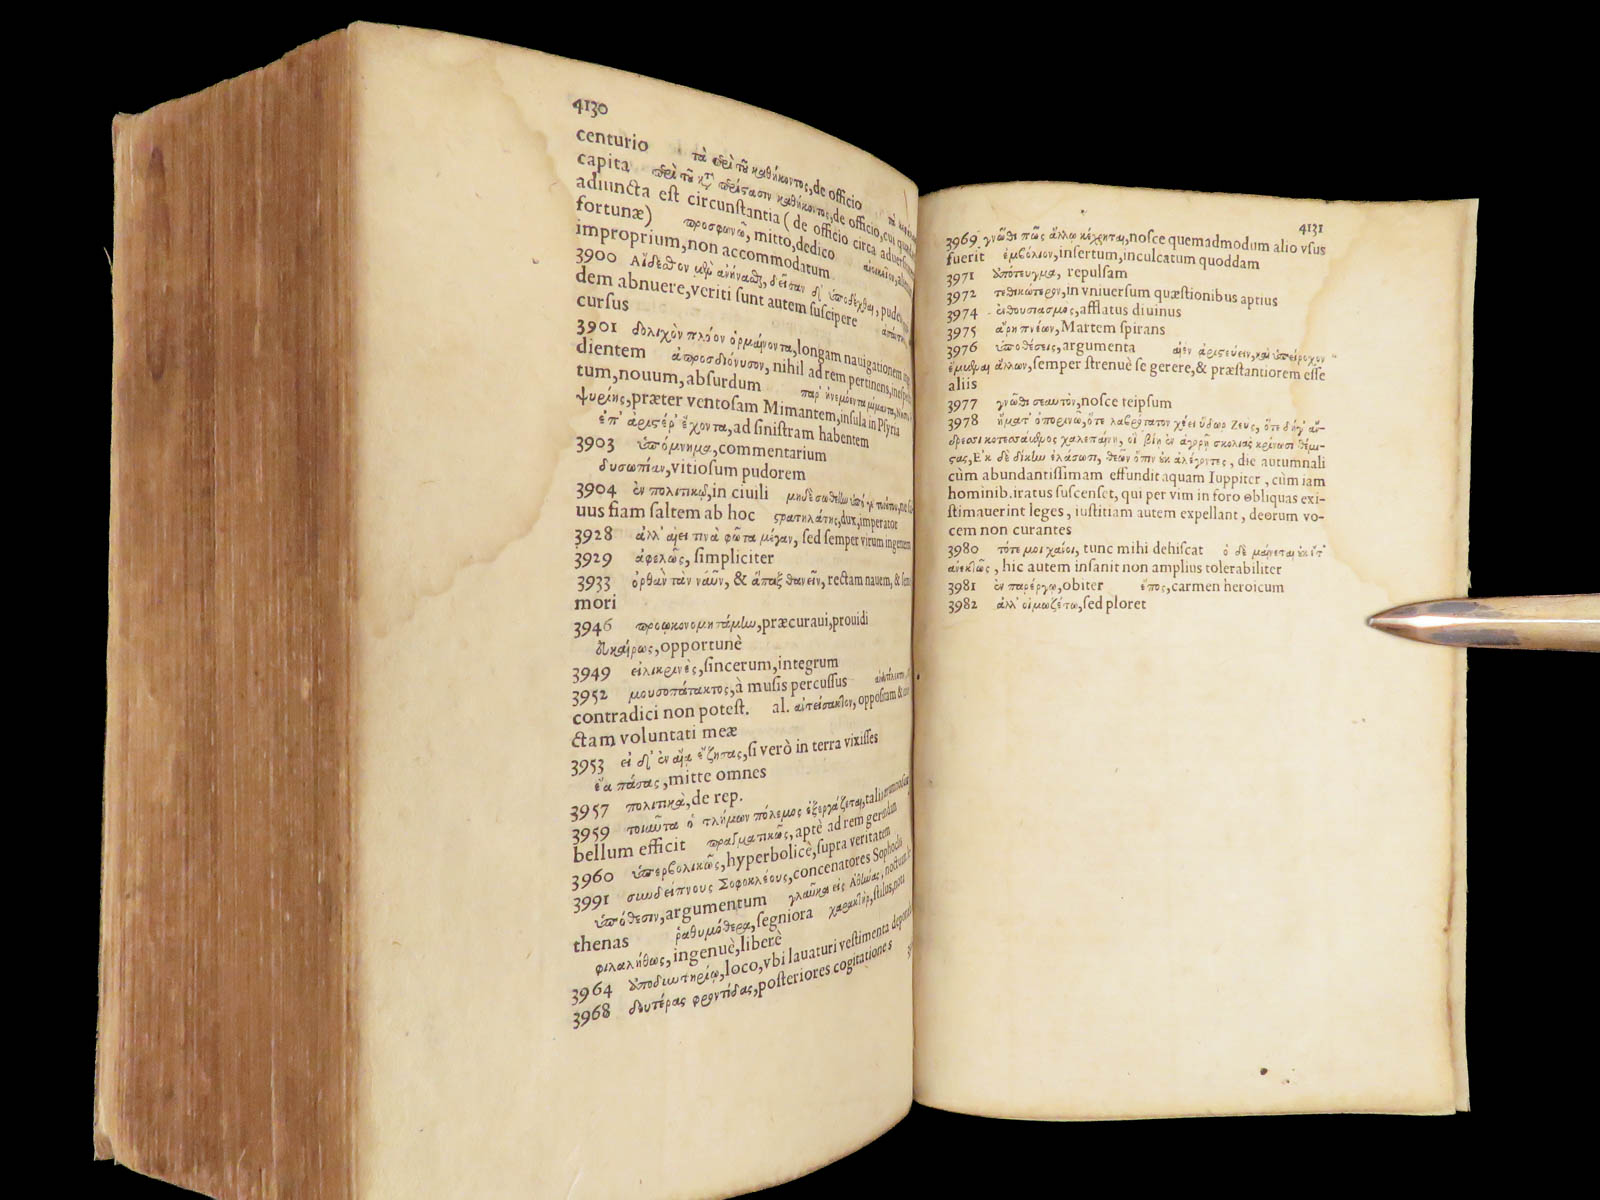 4130
centurio τὰ περὶ τοῦ καθήκοντος, de officio
capita περὶ τοῦ κατὰ περίστασιν καθήκοντος, de officio, cui
adiuncta est circunstantia (de officio circa
fortunæ) προσφωνῶ, mitto, dedico
improprium, non accommodatum
3900 Αἴδεσθεν μὲν ἀνήνασθαι, δεῖσαν δ' ὑποδέχθαι,
dem abnuere, veriti sunt autem suscipere
cursus
3901 δολιχὸν πλόον ὁρμαίνοντα, longam nauigationem
dientem ἀπροσδιόνυσον, nihil ad rem pertinens,
tum, nouum, absurdum παρ' ἠνεμόεντα μίμαντα,
ψυρίης, præter ventosam Mimantem, insula in Psyria
ἐπ' ἀριστέρ' ἔχοντα, ad sinistram habentem
3903 ὑπόμνημα, commentarium
δυσωπίαν, vitiosum pudorem
3904 ἐν πολιτικῷ, in ciuili
uus fiam saltem ab hoc στρατηλάτης, dux, imperator
3928 ἀλλ' αἰεί τινα φῶτα μέγαν, sed semper virum ingentem
3929 ἀφελῶς, simpliciter
3933 ὀρθὰν τὰν ναῦν, & ἅπαξ θανεῖν, rectam nauem, &
mori
3946 προῳκονομησάμην, præcuraui, prouidi
εὐκαίρως, opportunè
3949 εἰλικρινὲς, sincerum, integrum
3952 μουσοπάτακτος, à musis percussus
contradici non potest. al. ἀντείσακτον,
ctam voluntati meæ
3953 εἰ δ' ἐν αἴᾳ ἔζησας, si verò in terra vixisses
ἔα πάσας, mitte omnes
3957 πολιτικὰ, de rep.
3959 τοιαῦτα ὁ τλήμων πόλεμος ἐξεργάζεται,
bellum efficit πραγματικῶς, aptè ad rem gerendam
3960 ὑπερβολικῶς, hyperbolicè, supra veritatem
3991 συνδείπνους Σοφοκλέους, concenatores Sophoclis
ὑπόθεσιν, argumentum γλαῦκα εἰς Ἀθήνας,
thenas ῥαθυμότερα, segniora χαρακτὴρ, stilus,
φιλαλήθως, ingenuè, liberè
3964 ἀποδυτηρίῳ, loco, vbi lauaturi vestimenta
3968 δευτέρας φροντίδας, posteriores cogitationes
4131
3969 γνῶθι πῶς ἄλλῳ κέχρηται, nosce quemadmodum alio vsus
fuerit ἐμβόλιον, insertum, inculcatum quoddam
3971 ἀπότευγμα, repulsam
3972 θετικώτερον, in vniuersum quæstionibus aptius
3974 ἐνθουσιασμὸς, afflatus diuinus
3975 ἄρη πνέων, Martem spirans
3976 ὑποθέσεις, argumenta αἰὲν ἀριστεύειν, καὶ ὑπείροχον
ἔμμεναι ἄλλων, semper strenuè se gerere, & præstantiorem esse
aliis
3977 γνῶθι σεαυτὸν, nosce teipsum
3978 ἤματ' ὀπωρινῷ, ὅτε λαβρότατον χέει ὕδωρ Ζεὺς, ὅτε δή γ' ἄν-
δρεσσι κοτεσσάμενος χαλεπήνῃ, οἳ βίῃ ἐν ἀγορῇ σκολιὰς κρίνωσι θέμι-
στας, Ἐκ δὲ δίκην ἐλάσωσι, θεῶν ὄπιν οὐκ ἀλέγοντες, die autumnali
cùm abundantissimam effundit aquam Iuppiter, cùm iam
hominib. iratus suscenset, qui per vim in foro obliquas exi-
stimauerint leges, iustitiam autem expellant, deorum vo-
cem non curantes
3980 τότε μοι χάνοι, tunc mihi dehiscat ὁ δὲ μαίνεται οὐκ ἔτ'
ἀνεκτῶς, hic autem insanit non amplius tolerabiliter
3981 ἐν παρέργῳ, obiter ἔπος, carmen heroicum
3982 ἀλλ' οἰμωζέτω, sed ploret